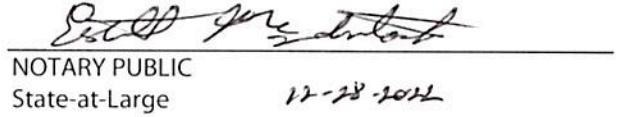 NOTARY PUBLIC
State-at-Large 12-28-2022